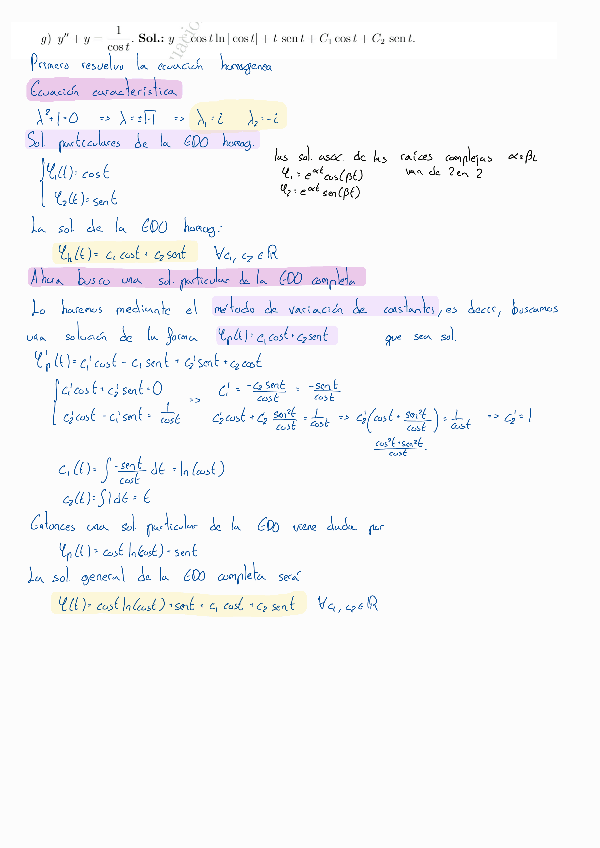 g) y'' + y = 1/cos t. Sol.: y = cos t ln | cos t| + t sen t + C₁ cos t + C₂ sen t.
Primero resuelvo la ecuación homogenea
Ecuación característica
λ²+1=0 => λ=±√-1 => λ₁=i λ₂=-i
Sol particulares de la EDO homog.
las sol. asoc. de las raíces complejas α±βi
φ₁=e^αt cos(βt) van de 2 en 2
φ₂=e^αt sen(βt)
φ₁(t)=cost
φ₂(t)=sent
La sol de la EDO homog:
φh(t)= c₁ cost + c₂ sent ∀c₁, c₂ ∈ ℝ
Ahora busco una sol. particular de la EDO completa
Lo haremos mediante el método de variación de constantes, es decir, buscamos
una solución de la forma φp(t)=c₁cost+c₂sent que sea sol.
φp'(t)=c₁'cost - c₁sent + c₂'sent + c₂cost
c₁'cost + c₂'sent=0 => c₁' = -c₂'sent/cost = -sent/cost
c₂'cost - c₁'sent = 1/cost c₂'cost + c₂' sen²t/cost = 1/cost => c₂'(cost + sen²t/cost) = 1/cost => c₂'=1
cos²t+sen²t/cost
c₁(t)=∫ -sent/cost dt = ln(cost)
c₂(t)=∫1dt = t
Entonces una sol particular de la EDO viene dada por
φp(t)=cost ln(cost)+sent
La sol general de la EDO completa será
φ(t)=cost ln(cost)+sent + c₁ cost + c₂ sent ∀c₁, c₂ ∈ ℝ